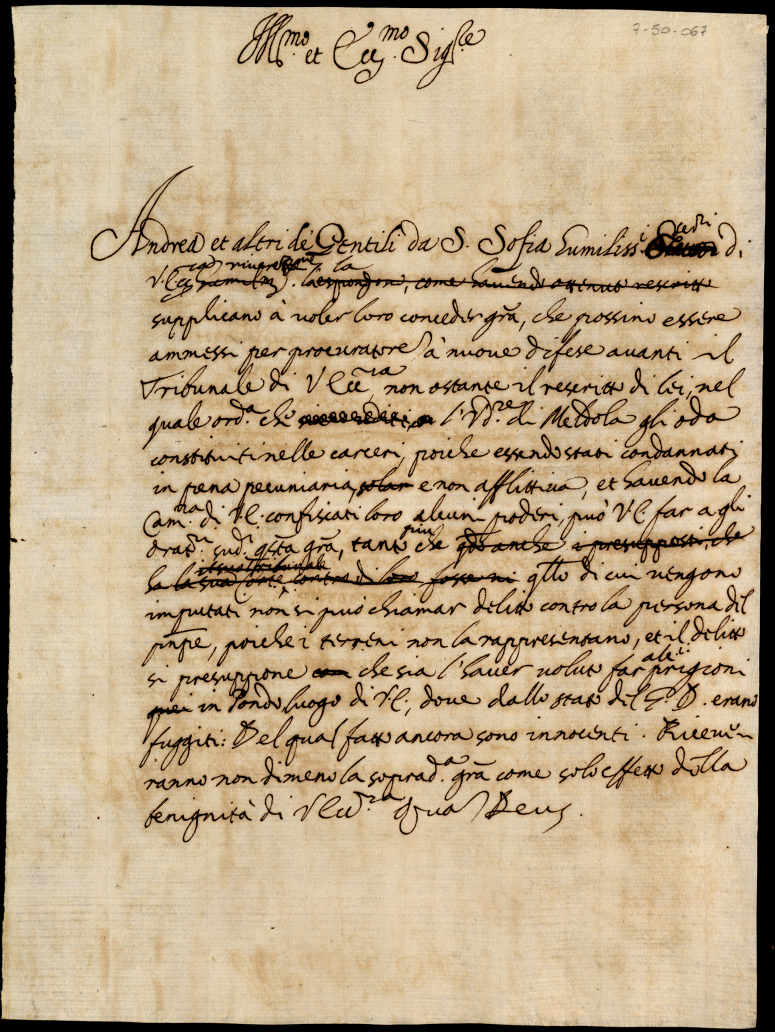 7-50-067
Ill.mo et Ecc.mo Sig.re
Andrea et altri de Gentili da S. Sofia humiliss.i di
V. Ecc.za riverentemente la
supplicano à voler loro conceder grã, che possino essere
ammessi per procuratore à nuove difese avanti il
Tribunale di V Ecc.za non ostante il rescritto di lei, nel
quale ord.a che l'Ud.re di Meldola gli oda
constituiti nelle carceri, poiche essendo stati condannati
in pena pecuniaria, solar e non afflittiva, et havendo la
Cam.ra di V.E. confiscati loro alcuni poderi, può V.E. far a gli
Orat.ri sud.i q̃sta grã, tanto più che q̃do anche i presupposti, che
ha la sua Corte contro di loro fossero il suo Tribunale q̃llo di cui vengono
imputati non si può chiamar delitto contro la persona del
pnpe, poiche i terreni non la rappresentano, et il delitto
si presuppone che sia l'haver voluto far alc.i prigioni
quei in Pondo luogo di V.E., dove dallo stato del G. D. erano
fuggiti: Del qual fatto ancora sono innocenti. Riceve-
ranno non dimeno la soprad.a grã come solo effetto della
benignità di V Ecc.za qua Deus.